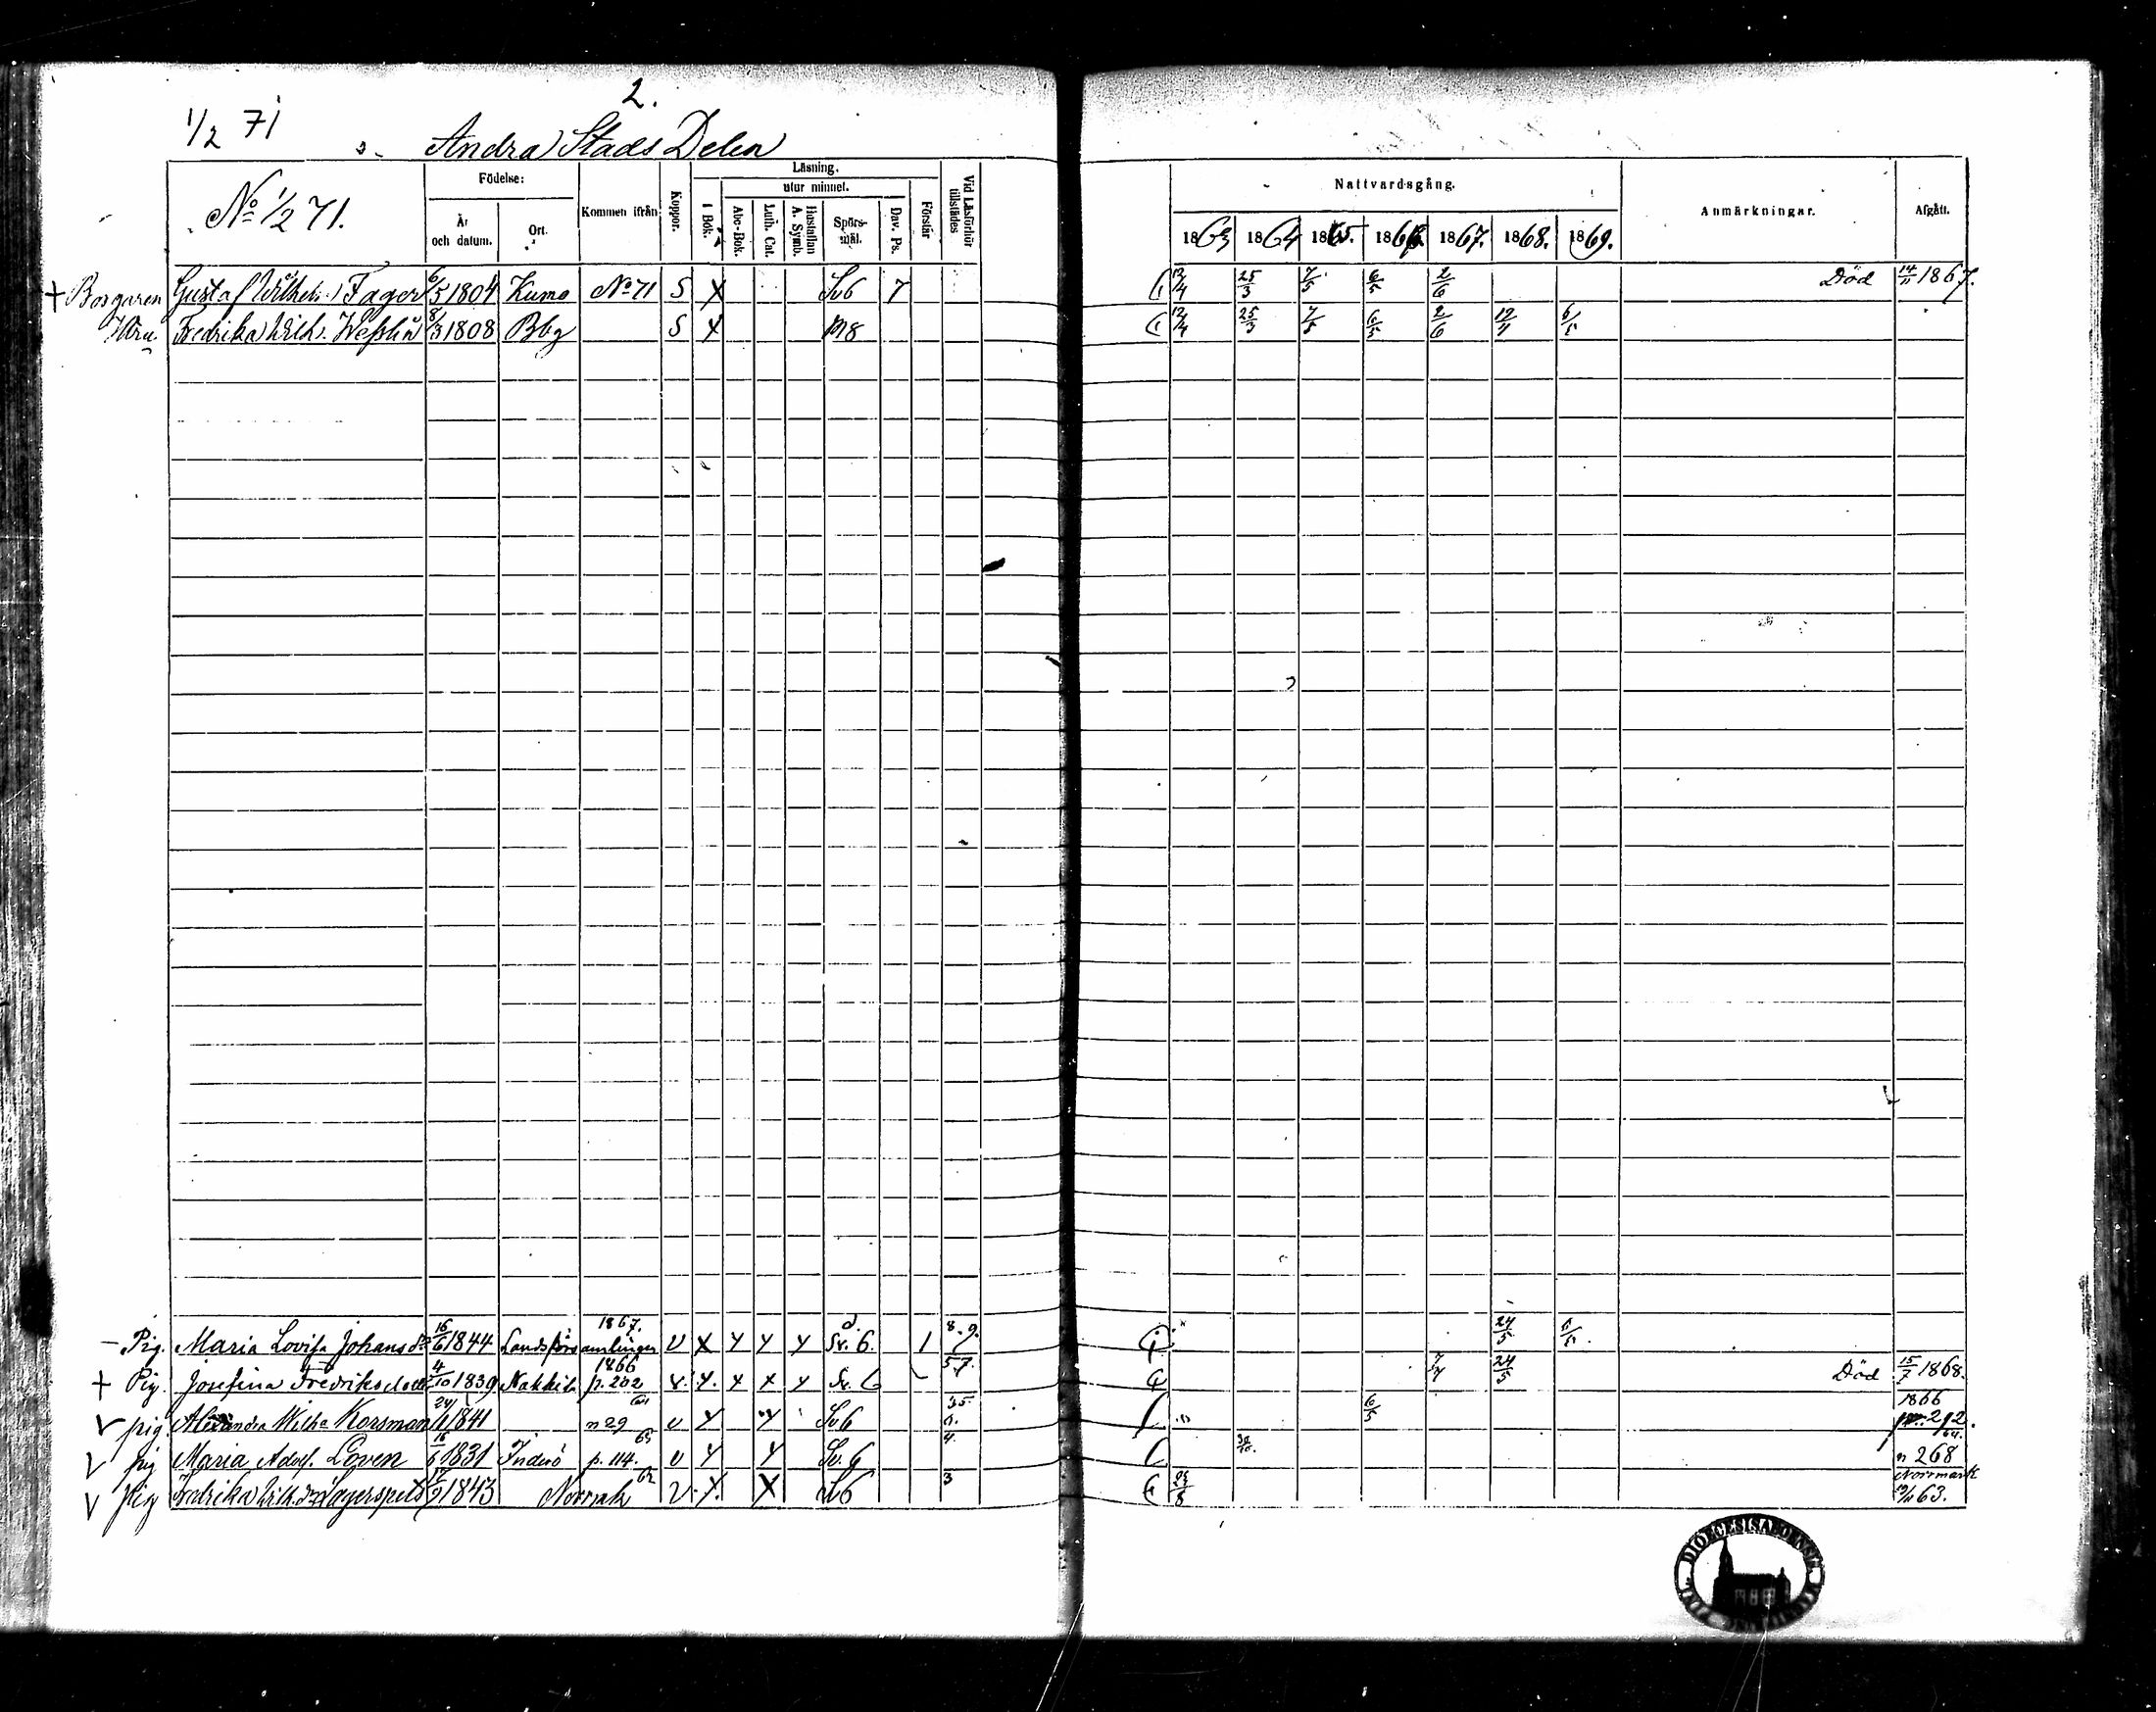 2.
1/2 71
Andra Stads Delen
No 1/2 71.
Födelse: År och datum. Ort. Kommen ifrån Koppor. Läsning. I Bok. utur minnet. Abc-Bok. Luth. Cat. Hustaflan A. Symb. Spörs-mål. Dav. Ps. Förstår Vid Läsförhör tillstädes
Nattvardsgång. 1863 1864 1865. 1866. 1867. 1868. 1869. Anmärkningar. Afgått.
+ Borgaren Gustaf Wilhelm Fager 6/5 1804 Kumo No 71 S X Sv6 7 12/4 25/3 7/5 6/5 2/6 Död 14/11 1867.
Fredrika Wilh. 8/3 1808 Bbg S X 8 12/4 25/3 7/5 6/5 2/6 12/4
1867. 8. 9.
– Pig. Maria Lovisa Johansdr 16/6 1844 Landsförsamlingen v X Y Y Y Sv. 6. 1 24/5
1866 5.7.
+ Pig. Josefina Fredriksdotter 4/10 1839 Nakkila p. 202 v. Y. Y X Y Sv. 6 7/4 24/5 Död 15/7 1868.
1866
v pig. Alexandra Wilha Korsman 1841 n 29 v Y Y Sv6 6/5 212.
v pig Maria Adolf. Loven 16/6 1831 p. 114. v Y Y Sv. 6 4. n 268
v Pig Fredrika Wilh. Lagerspets 1843 Norrmark v Y. X 6 3 Norrmark 63.